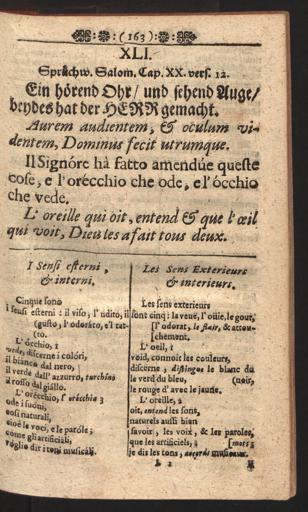 (163)
XLI.
Sprüchw. Salom. Cap. XX. vers. 12.
Ein hörend Ohr/ und sehend Auge/
beydes hat der HERR gemacht.
Aurem audientem, & oculum vi-
dentem, Dominus fecit utrumque.
Il Signóre hà fatto amendúe queste
cose, e l'orécchio che ode, e l'ócchio
che vede.
L'oreille qui oit, entend & que l'œil
qui voit, Dieu les a fait tous deux.
I Sensi esterni,
& interni.
Cinque sono
i sensi esterni : il viso, l'udito, il
(gusto, l'odoráto, e'l tat-
to.
L'ócchio, 1
vede, discerne i colóri,
il bianco dal nero,
il verde dall'azzurro, turchino
il rosso dal giallo.
L'orécchio, l'orécchia 2
ode i suóni,
così naturali,
cioè le voci, e le paróle;
come gli artificiáli,
vóglio dir i toni musicáli.
Les Sens Exterieurs
& interieurs.
Les sens exterieurs
sont cinq : la veuë, l'ouïe, le gout,
[l'odorat, le flair, & attou-
chement.
L'œil, 1
void, connoit les couleurs,
discerne, distingue le blanc du
le verd du bleu, (noir,
le rouge d'avec le jaune.
L'oreille, 2
oit, entend les sons,
naturels aussi bien
savoir, les voix, & les paroles,
que les artificiels,
je dis les tons, accords musicaux.
L 2